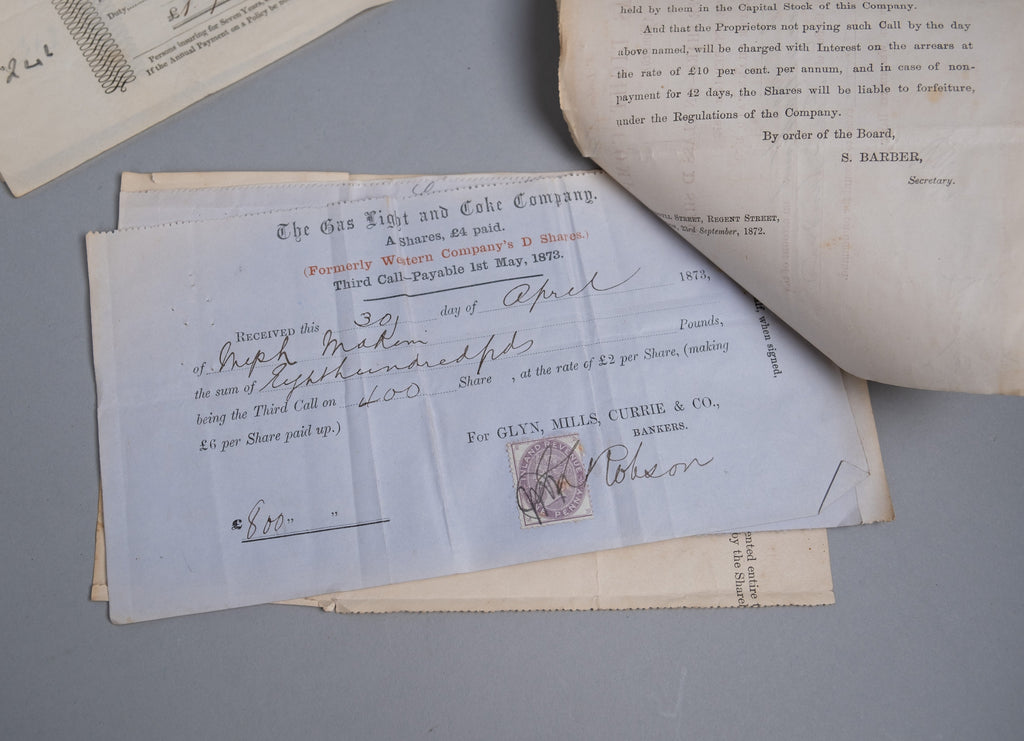 Duty
£1
Persons insuring for Seven Years,
If the Annual Payment on a Policy be
held by them in the Capital Stock of this Company.
And that the Proprietors not paying such Call by the day
above named, will be charged with Interest on the arrears at
the rate of £10 per cent. per annum, and in case of non-
payment for 42 days, the Shares will be liable to forfeiture,
under the Regulations of the Company.
By order of the Board,
S. BARBER,
Secretary.
STREET, REGENT STREET,
23rd September, 1872.
The Gas Light and Coke Company.
A Shares, £4 paid.
(Formerly Western Company's D Shares.)
Third Call—Payable 1st May, 1873.
RECEIVED this 30 day of April 1873,
of Meph Makin
the sum of Eight hundred pds Pounds,
being the Third Call on 400 Share , at the rate of £2 per Share, (making
£6 per Share paid up.)
For GLYN, MILLS, CURRIE & CO.,
BANKERS.
Robson
INLAND REVENUE
PENNY
£800 " "
when signed.
ented entire
by the Share